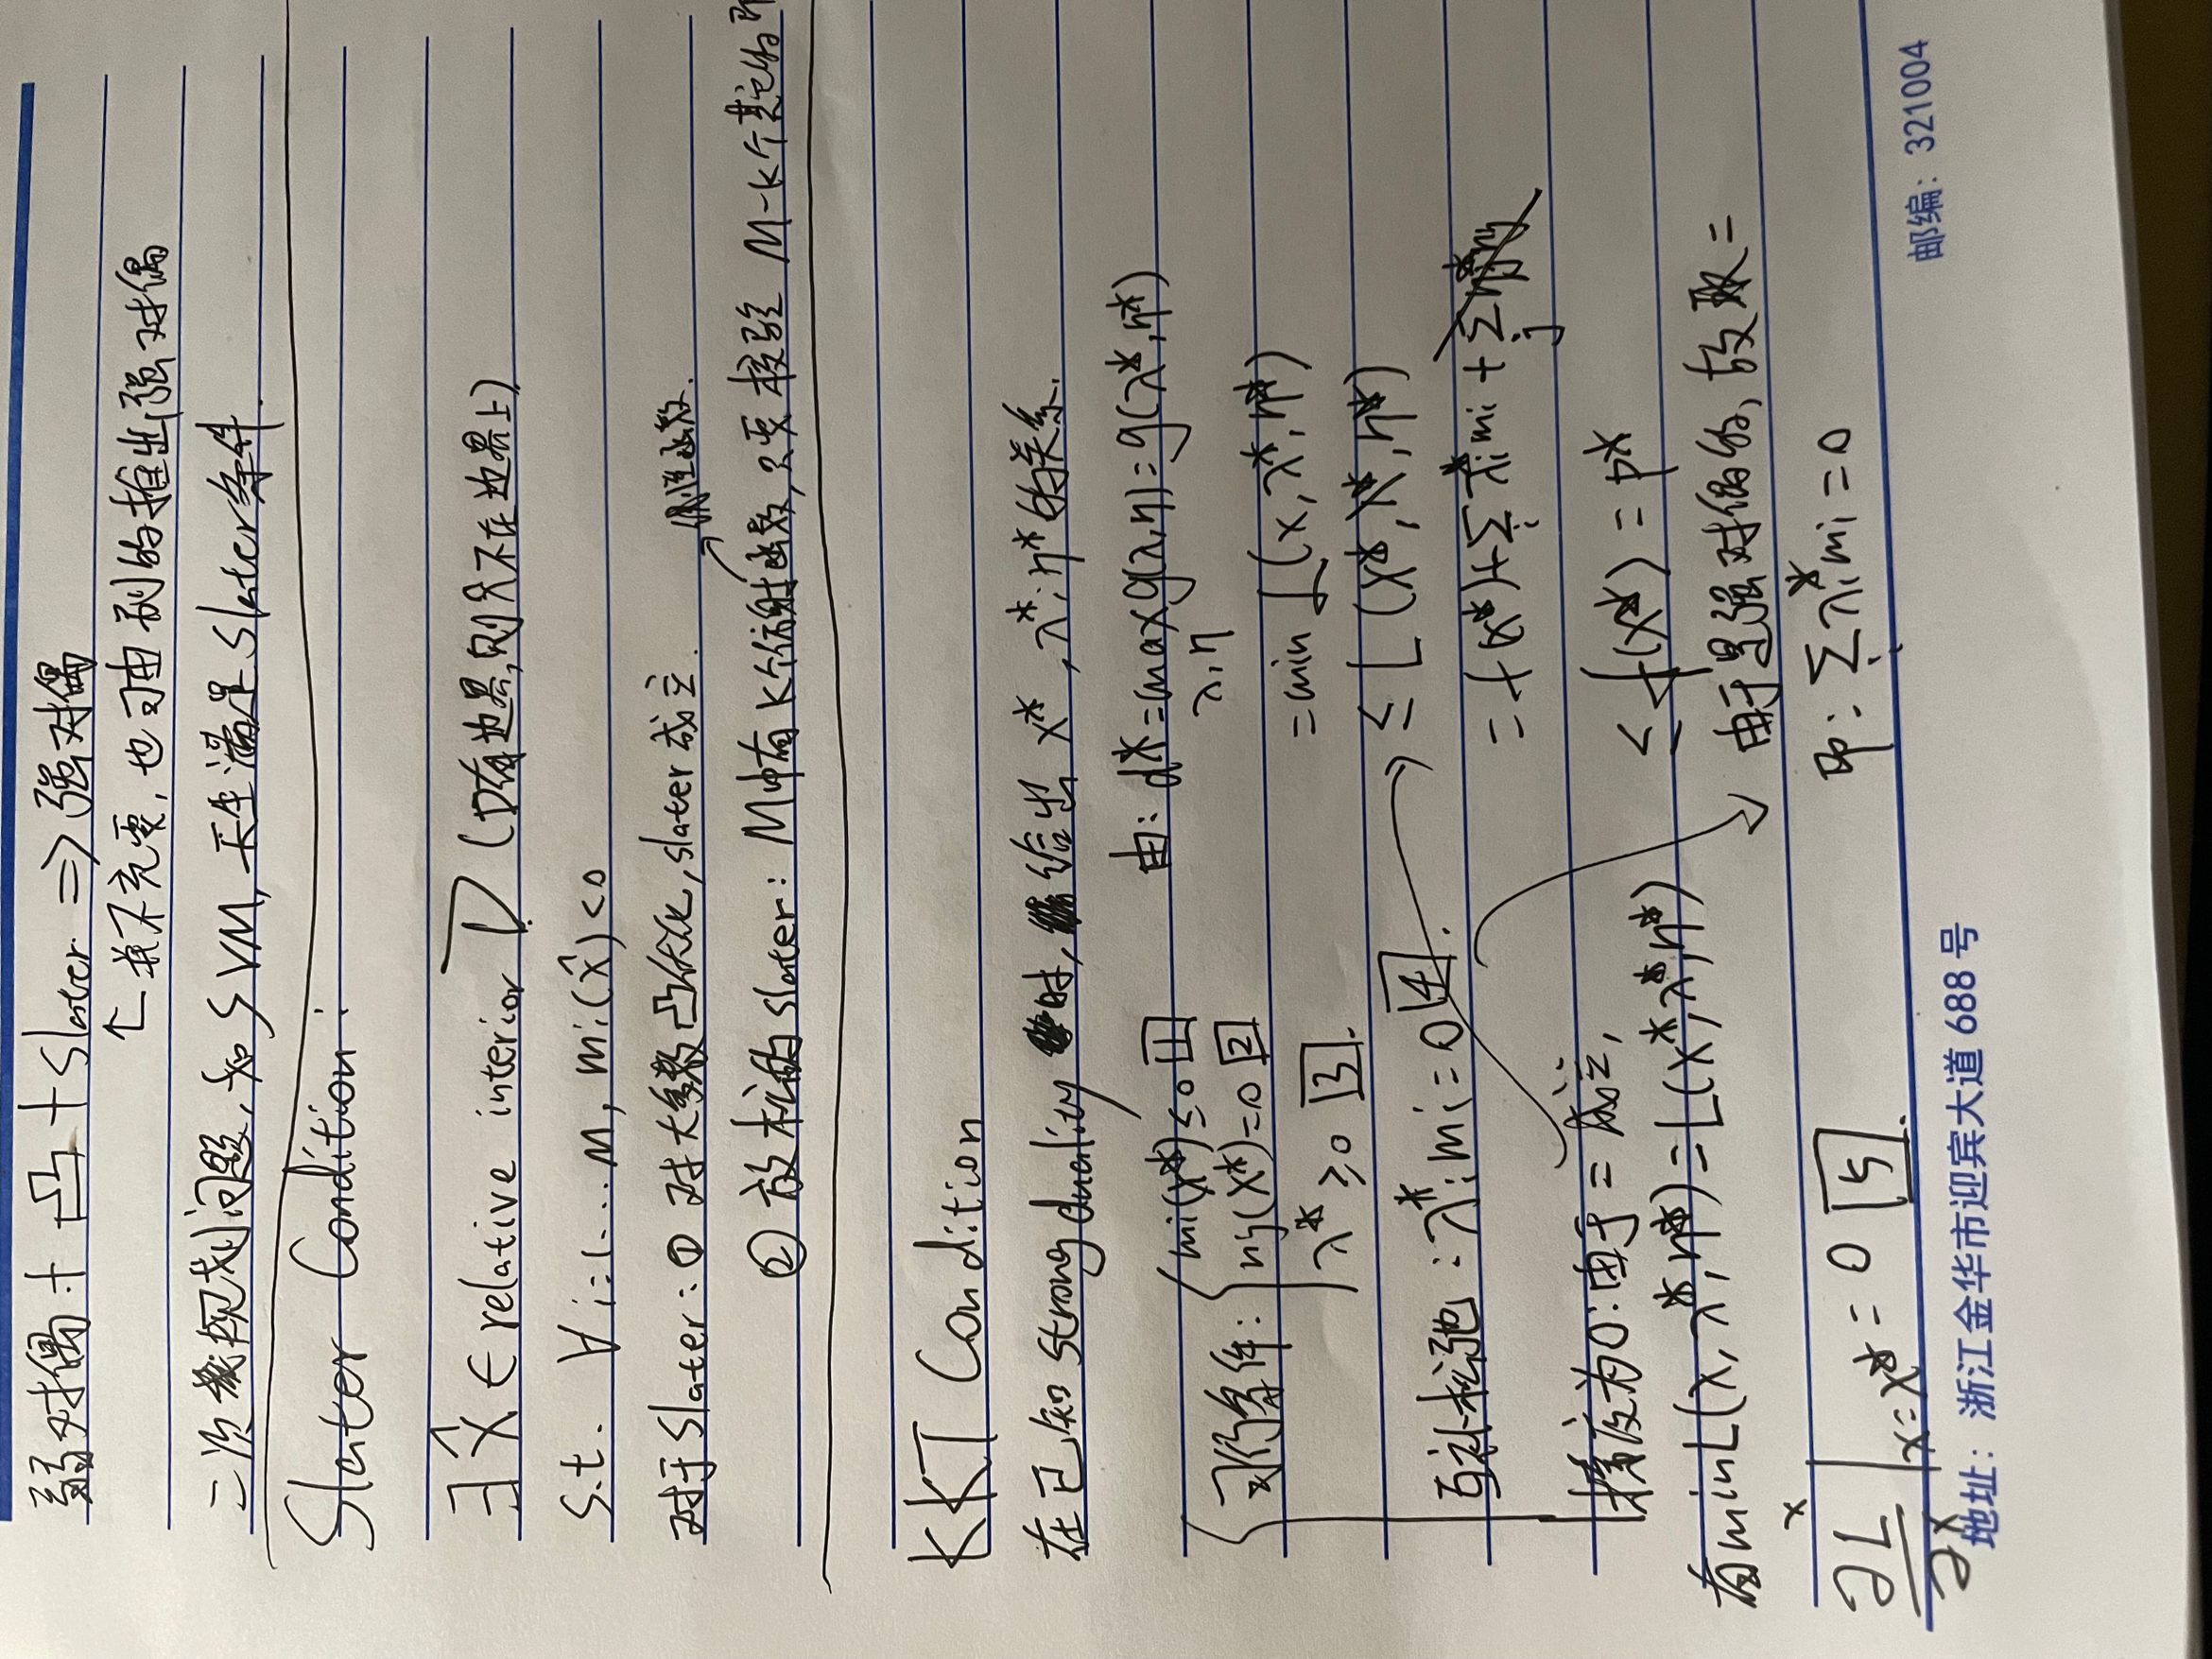 弱对偶 + 凸 + Slater. => 强对偶
↑ 并不充要, 也可由别的推出强对偶
二次规划问题, 如SVM, 天生满足Slater条件.
Slater Condition:
∃ x̂ ∈ relative interior D (D有边界,则x̂不在边界上)
s.t. ∀ i=1...M, mi(x̂)<0
对于Slater: ① 对大多数凸优化, slater成立.
→ 线性函数.
② 放松的slater: M中有K个仿射函数, 只要校验 M-K个其它的即
KKT Condition
在已知 strong duality 时, 给出 x*, λ*, η*的关系.
可行条件: { mi(x*)≤0 [1]
nj(x*)=0 [2]
λ* ≥0 [3].
互补松弛: λ*i mi=0 [4].
梯度为0: 由于 = 成立,
有min L(x, λ*, η*)=L(x*, λ*, η*)
x
∂L/∂x |x=x* = 0 [5].
由: d*=max g(λ,η)=g(λ*,η*)
λ,η
=min L(x, λ*, η*)
≤ L(x*, λ*, η*)
= f(x*)+∑i λ*i mi + ∑j η*j nj
≤ f(x*) = p*
由于是强对偶的, 故取 =
即: ∑i λ*i mi = 0
地址: 浙江金华市迎宾大道 688 号
邮编: 321004